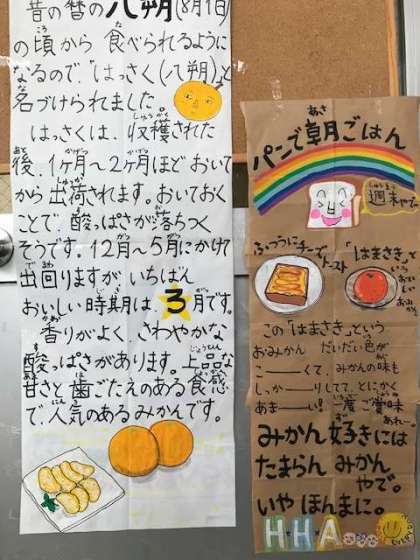 昔の暦の八朔(8月1日)
の頃から食べられるように
なるので、"はっさく(八朔)"と
名づけられました。
はっさくは、収穫された
後、1ヶ月〜2ヶ月ほどおいて
から出荷されます。おいておく
ことで、酸っぱさが落ちつく
そうです。12月〜5月にかけて
出回りますが、いちばん
おいしい時期は3月です。
香りがよく、さわやかな
酸っぱさがあります。上品な
甘さと歯ごたえのある食感
で、人気のあるみかんです。
パンで朝ごはん
週末やで〜
ふつうにチーズ
トースト
「はまさき」と
この「はまさき」という
おみかん だいだい色が
こ——くて、みかんの味も
しっか——りしてて、とにかく
あま——い!
みかん好きには
たまらん みかん
やで。
いや ほんまに。
HHA